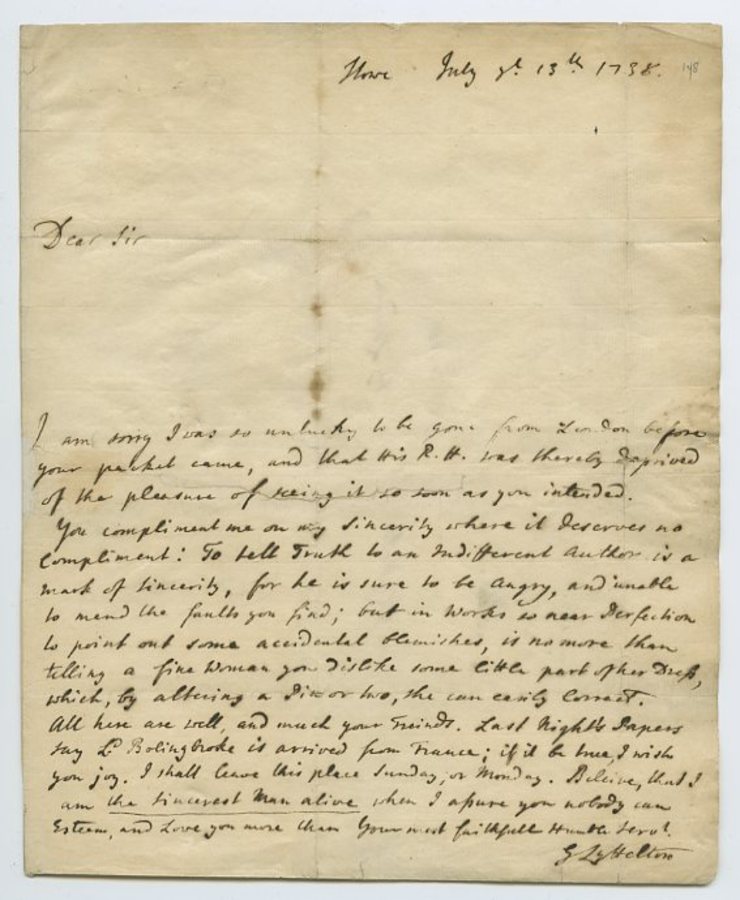 Stowe July yᵉ 13ᵗʰ 1738. 148
Dear Sir
I am sorry I was so unlucky to be gone from London before
your packet came, and that His R. H. was thereby deprived
of the pleasure of seeing it so soon as you intended.
You compliment me on my Sincerity where it deserves no
Compliment: To tell Truth to an Indifferent Author is a
mark of Sincerity, for he is sure to be angry, and unable
to mend the faults you find; but in Works so near Perfection
to point out some accidental blemishes, is no more than
telling a fine Woman you dislike some little part of her Dress,
which, by altering a Pin or two, she can easily Correct.
All here are well, and much your Freinds. Last Night's Papers
say Lᵈ Bolingbroke is arrived from France; if it be true, I wish
you joy. I shall leave this place Sunday, or Monday. Beleive, that I
am the Sincerest Man alive when I assure you nobody can
Esteem, and Love you more than Your most faithfull Humble Servᵗ.
G Lyttelton